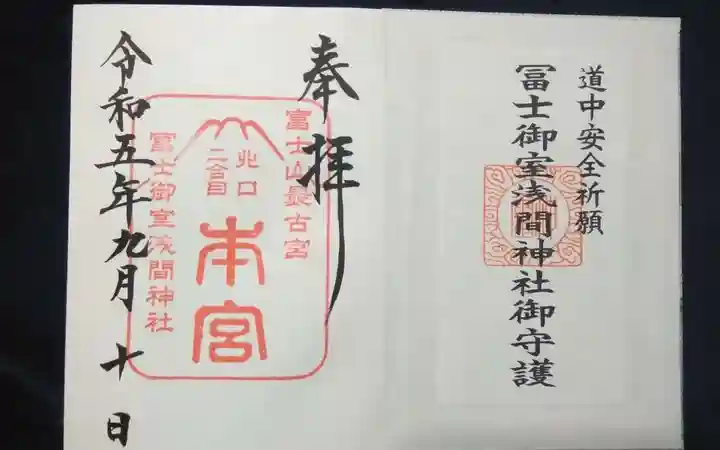 道中安全祈願
冨士御室浅間神社御守護
奉拝
富士山最古宮
北口
二合目
本宮
冨士御室浅間神社
令和五年九月十日